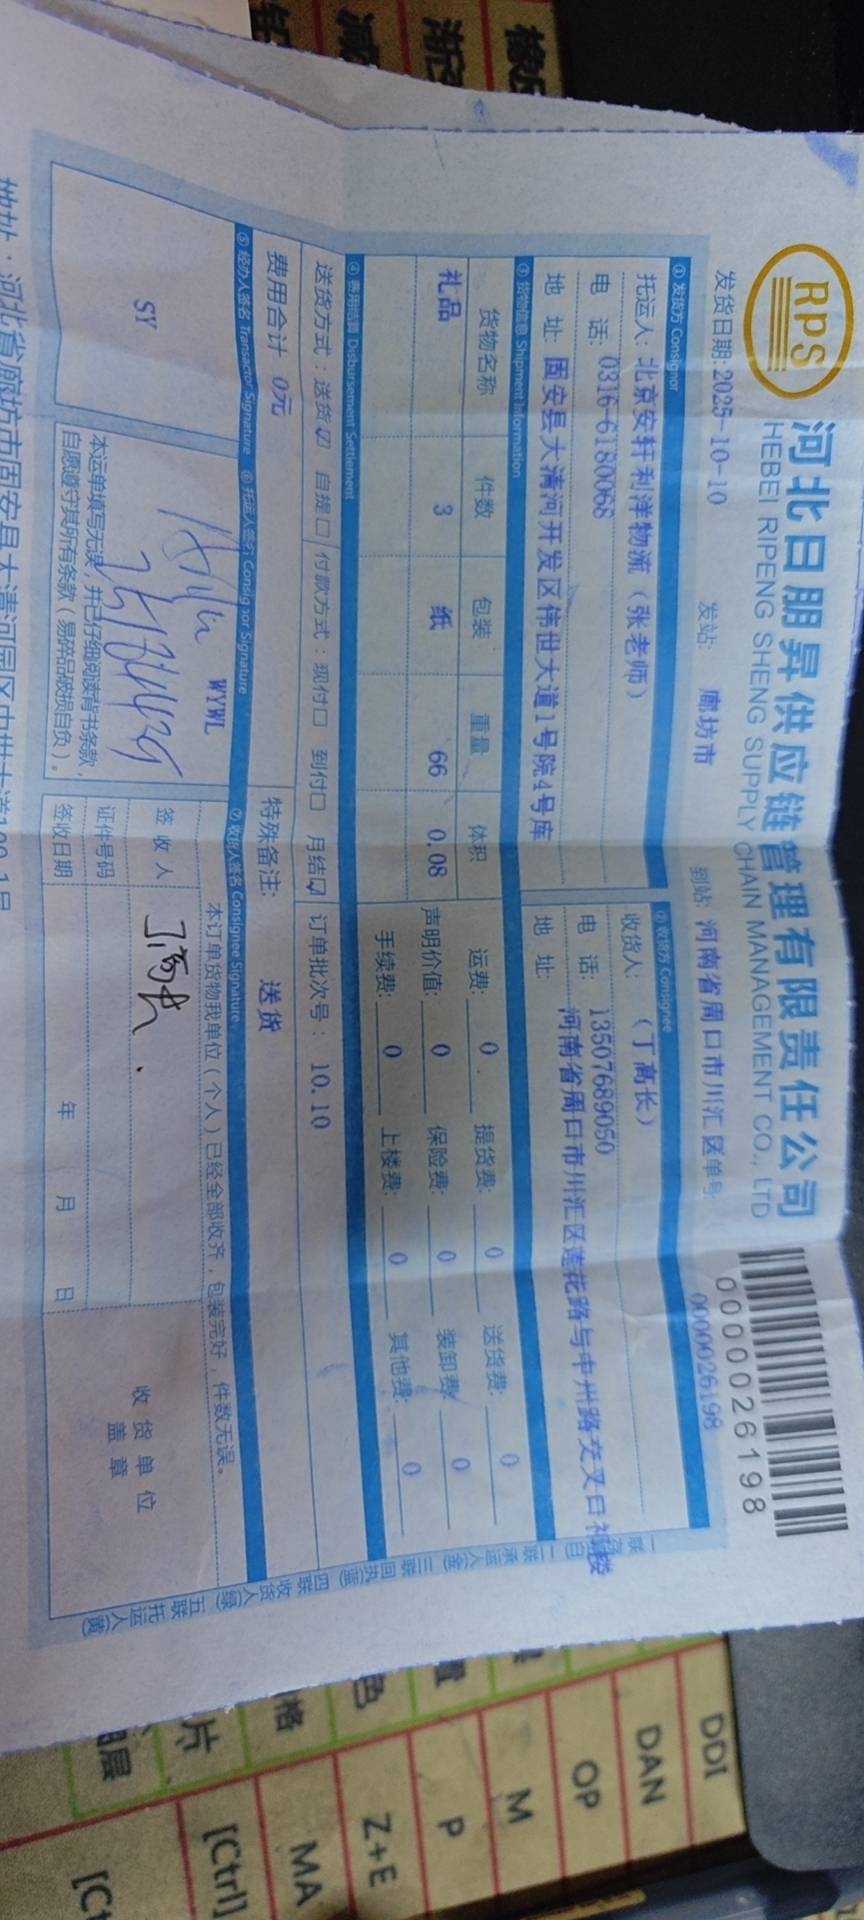 RPS
河北日朋昇供应链管理有限责任公司
HEBEI RIPENG SHENG SUPPLY CHAIN MANAGEMENT CO., LTD
0000026198
发货日期: 2025-10-10 发站: 廊坊市 到站: 河南省周口市川汇区 单号: 0000026198
① 发货方 Consignor
托运人: 北京安轩利洋物流（张老师）
电 话: 0316-6180068
地 址: 固安县大清河开发区伟世大道1号院4号库
② 收货方 Consignee
收货人: （丁高长）
电 话: 13507689050
地 址: 河南省周口市川汇区莲花路与中州路交叉口
③ 货物信息 Shipment Information
货物名称 件数 包装 重量 体积
礼品 3 纸 66 0.08
运费: 0 提货费: 0 送货费: 0
声明价值: 0 保险费: 0 装卸费: 0
手续费: 0 上楼费: 0 其他费: 0
④ 费用结算 Disbursement Settlement
送货方式：送货☑ 自提□ 付款方式：现付□ 到付□ 月结☑ 订单批次号： 10.10
费用合计 0元 特殊备注: 送货
⑤ 经办人签名 Transactor Signature ⑥ 托运人签名 Consignor Signature ⑦ 收货人签名 Consignee Signature
SY
WYWL
本运单填写无误，并已仔细阅读背书条款，
自愿遵守其所有条款（易碎品破损自负）。
本订单货物我单位（个人）已经全部收齐，包装完好，件数无误。
签 收 人 丁高长
证件号码
签收日期 年 月 日
收 货 单 位
盖 章
二联 承运人(金) 三联 回执(蓝) 四联 收货人(绿) 五联 托运人(黄)
地址：河北省廊坊市固安县大清河园区
DDI
DAN
OP
M
P
Z+E
MA
[Ctrl]
色
格
片